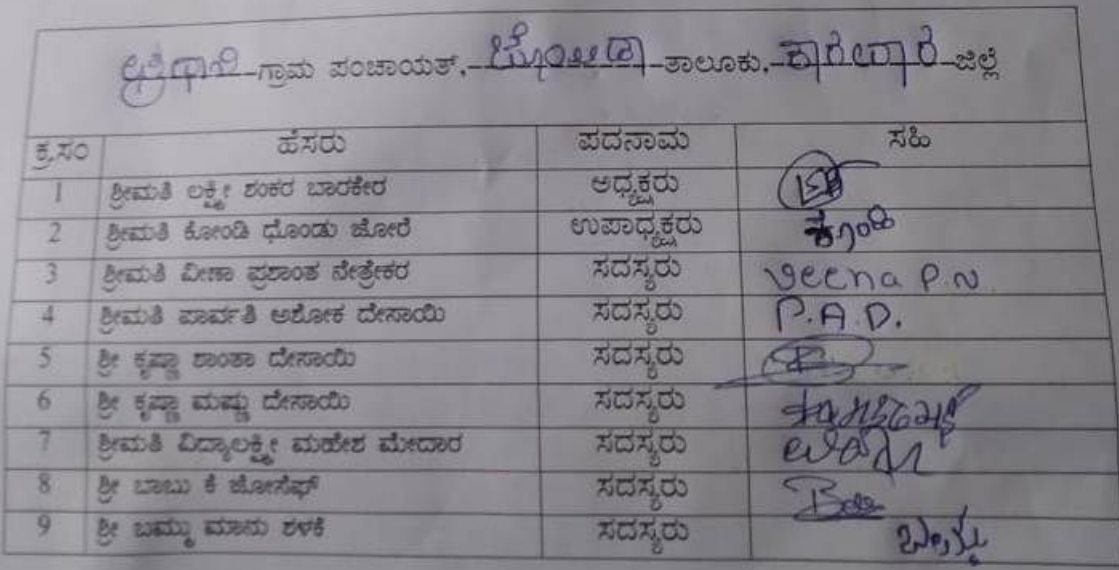 ಗ್ರಾಮ ಪಂಚಾಯತ್, ಜೋಯಿಡಾ ತಾಲೂಕು, ಕಾರವಾರ ಜಿಲ್ಲೆ
ಕ್ರ.ಸಂ ಹೆಸರು ಪದನಾಮ ಸಹಿ
1 ಶ್ರೀಮತಿ ಲಕ್ಷ್ಮೀ ಶಂಕರ ಬಾರಕೇರ ಅಧ್ಯಕ್ಷರು
2 ಶ್ರೀಮತಿ ಕೋಂಡಿ ಧೊಂಡು ಜೋರೆ ಉಪಾಧ್ಯಕ್ಷರು ಕೊಂಡಿ
3 ಶ್ರೀಮತಿ ವೀಣಾ ಪ್ರಶಾಂತ ನೇತ್ರೇಕರ ಸದಸ್ಯರು Veena P.N
4 ಶ್ರೀಮತಿ ಪಾರ್ವತಿ ಅಶೋಕ ದೇಸಾಯಿ ಸದಸ್ಯರು P.A.D.
5 ಶ್ರೀ ಕೃಷ್ಣಾ ಶಾಂತಾ ದೇಸಾಯಿ ಸದಸ್ಯರು
6 ಶ್ರೀ ಕೃಷ್ಣಾ ಮಷ್ಣು ದೇಸಾಯಿ ಸದಸ್ಯರು
7 ಶ್ರೀಮತಿ ವಿದ್ಯಾಲಕ್ಷ್ಮೀ ಮಹೇಶ ಮೇದಾರ ಸದಸ್ಯರು
8 ಶ್ರೀ ಬಾಬು ಕೆ ಜೋಸೆಫ್ ಸದಸ್ಯರು
9 ಶ್ರೀ ಬಮ್ಮು ಮಾನು ಶಳಕೆ ಸದಸ್ಯರು